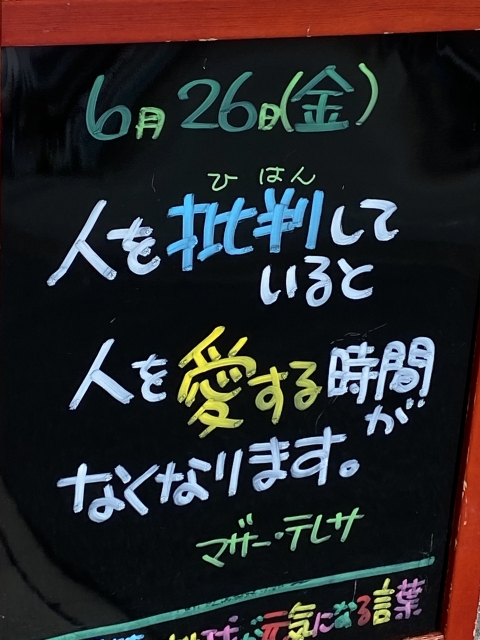 6月26日(金)
ひはん
人を批判して
いると
人を愛する時間
が
なくなります。
マザー・テレサ
が元気になる言葉